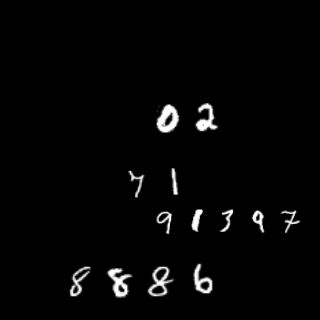 02
71
91397
8886